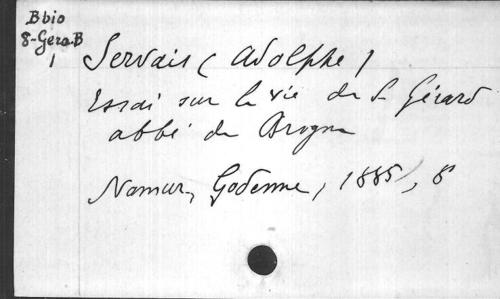 Bbio
8-Gera.B
1
Servais (Adolphe)
Essai sur la vie de S. Gérard
abbé de Brogne
Namur, Godenne, 1885, 8°